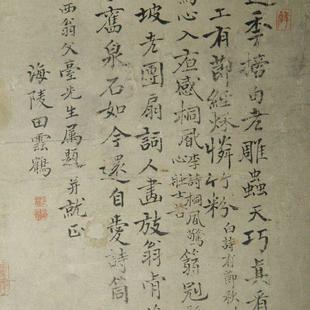 李擔白老雕蟲天巧真有
工有節經秋憐竹粉白詩有節秋
心入夜感桐風李詩桐風驚心壯士苦翁
坡老團扇詞人畫放翁肯
舊泉石如今還自愛詩筒
西翁父臺先生屬題并就正
海陵田雲鶴